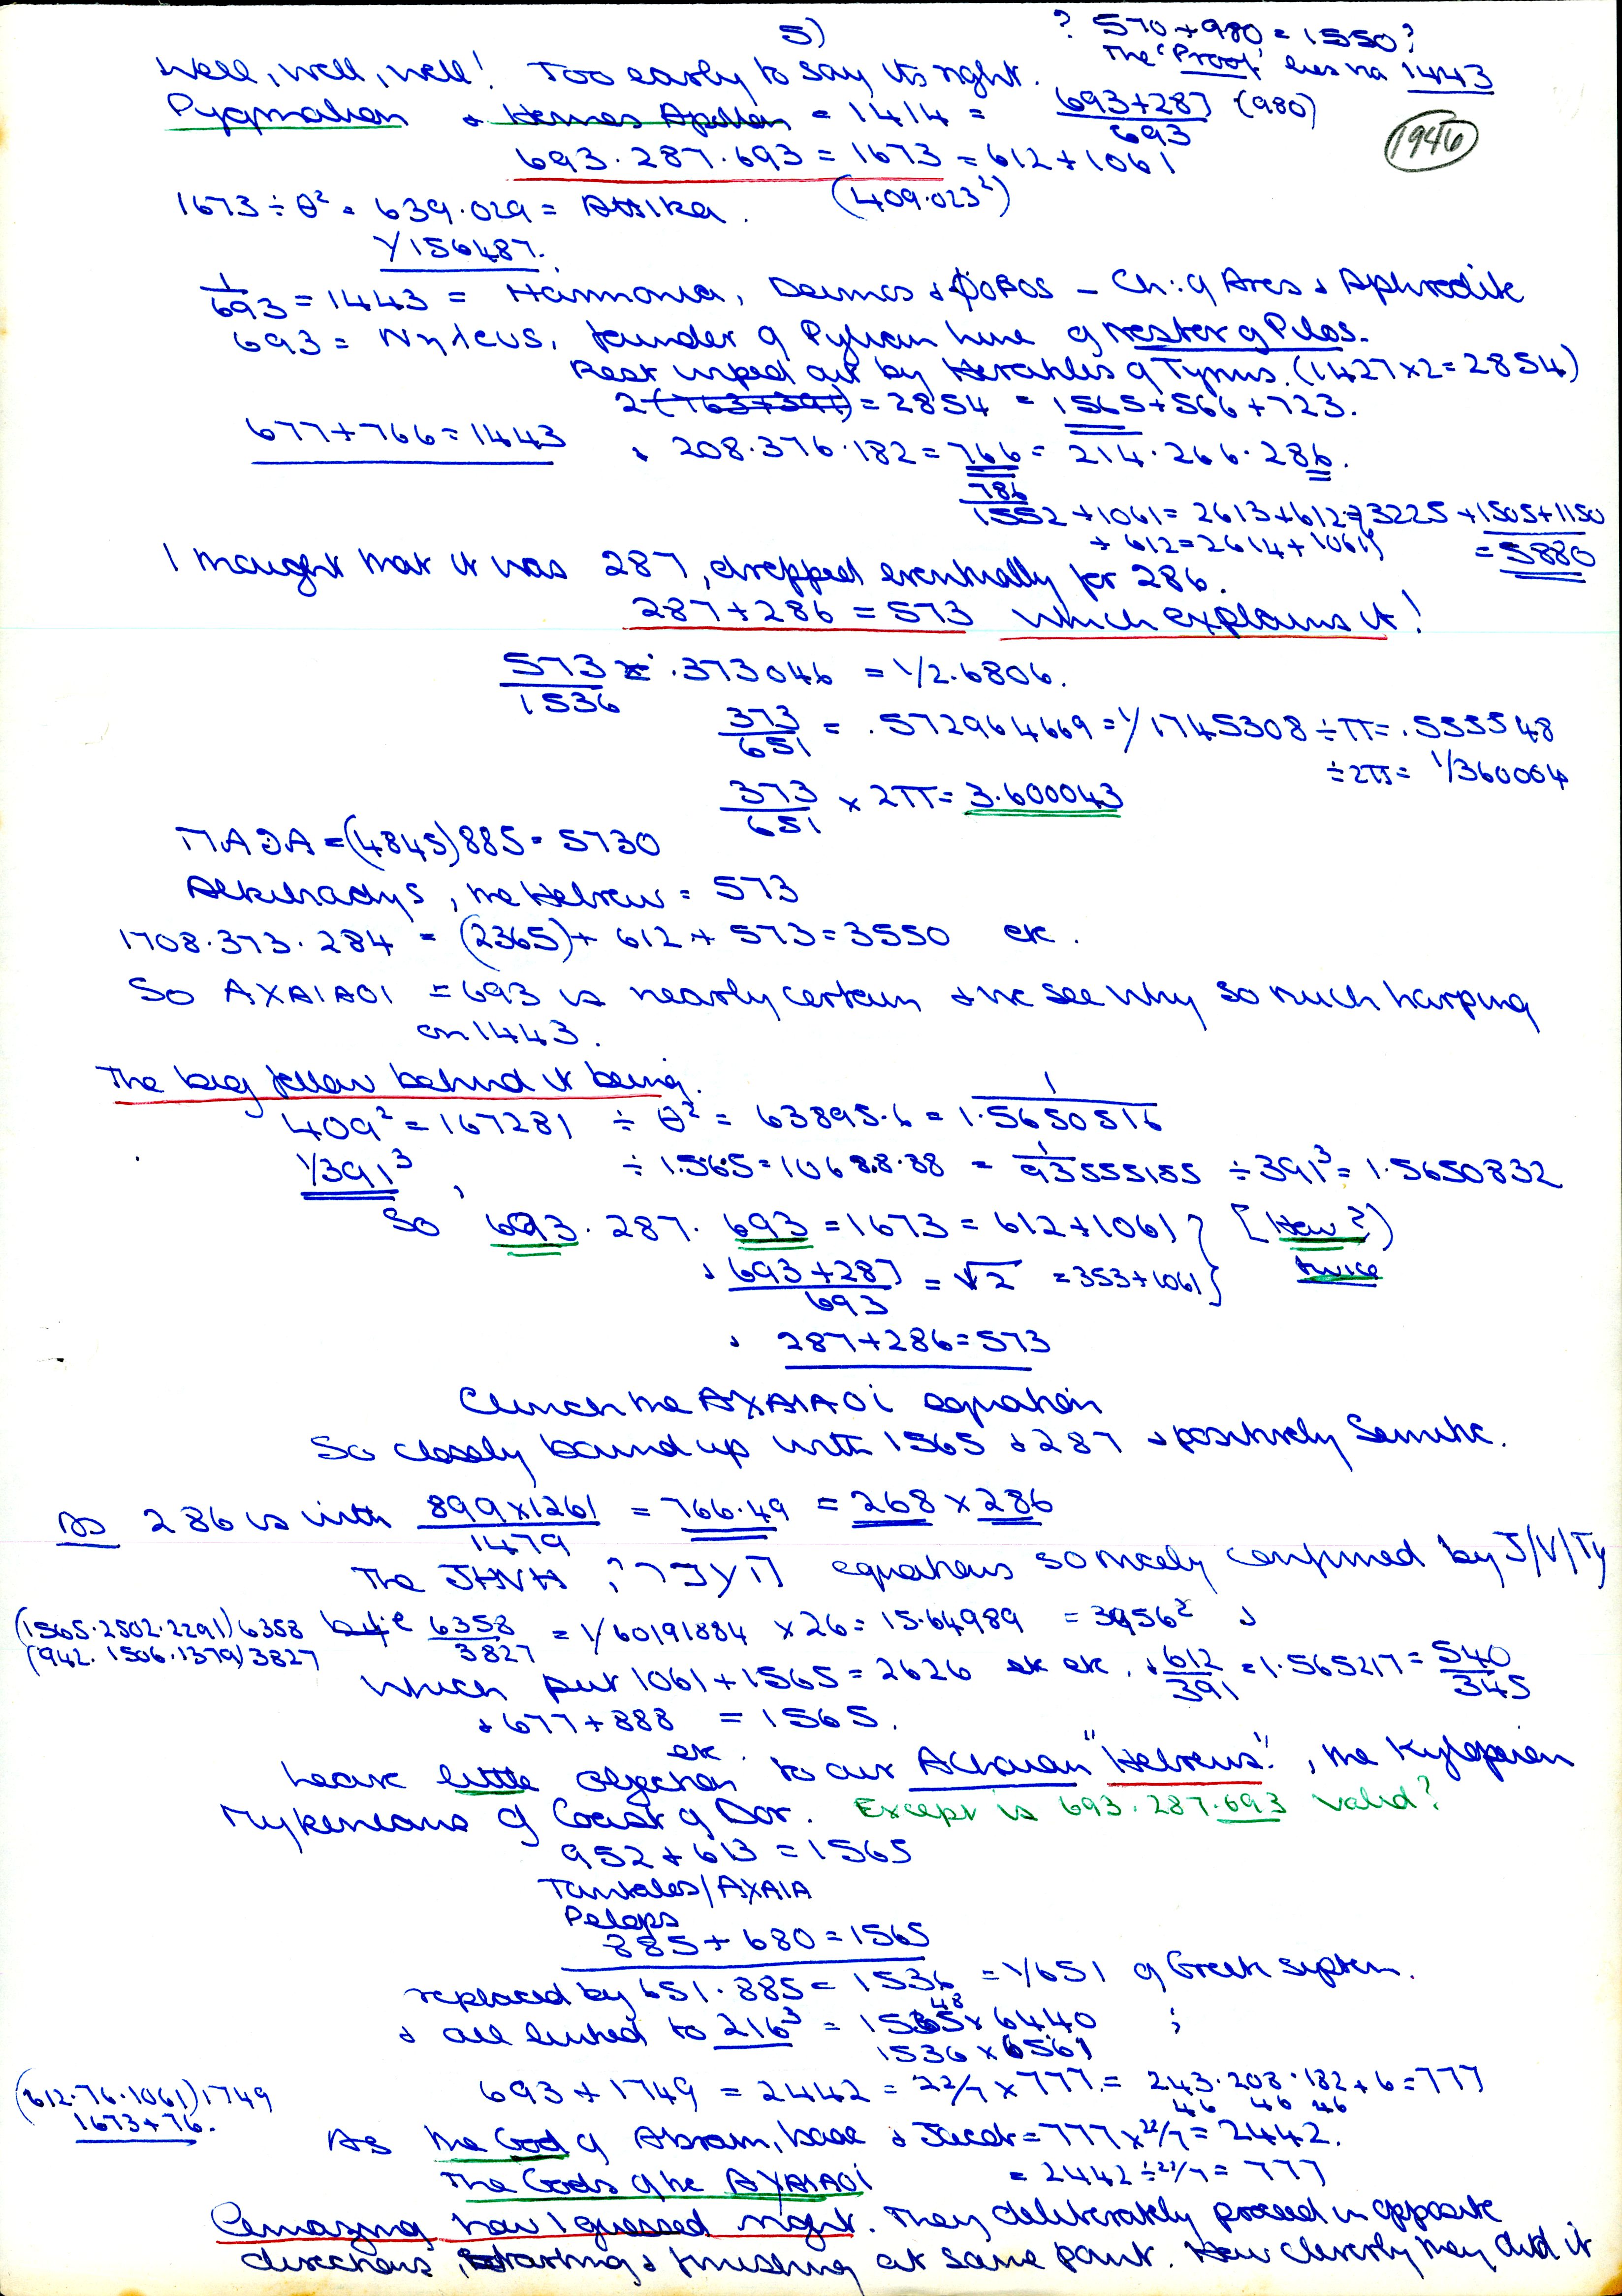 5)
? 570+980 = 1550?
Well, well, well! Too early to say its right.
The 'Proof' lies via 1443
Pygmalion & Hermes Apollon = 1414 = 693+287 (980)
693
1946
693.287.693 = 1673 = 612+1061
(409.023²)
1673 ÷ θ² = 639.029 = Attika.
1/156487.
1/693 = 1443 = Harmonia, Deimos & ΦΟΒΟS – Ch: of Ares & Aphrodite
693 = Nyleus, founder of Pylian line of Nestor of Pilos.
Rest wiped out by Herakles of Tyrins. (1427×2=2854)
2(763+391) = 2854 = 1565+566+723.
677+766=1443
& 208.376.182 = 766 = 214.266.286.
786
1552 +1061 = 2613+612 = 3225 +1505+1150
+ 612=2614+1061) = 5880
I thought that it was 287, dropped eventually for 286.
287+286 = 573 which explains it!
573/1536 = .373046 = 1/2.6806.
373/651 = .572964669 = 1/1745308 ÷ π = .555548
÷2π = 1/360004
373/651 × 2π = 3.600043
= (4845) 885 = 5730
Alkibiadys, the Hebrew = 573
1708.373.284 = (2365) + 612 + 573 = 3550 etc.
So AXAIAOI = 693 is nearly certain & we see why so much harping
on 1443.
The big fellow behind it being.
409² = 167281 ÷ θ² = 63895.6 = 1/1.5650516
1/391³, ÷ 1.565 = 10688.88 = 1/93555155 ÷ 391³ = 1.5650832
So 693.287.693 = 1673 = 612+1061 } [How?)
& 693+287/693 = √2 = 353+1061 } twice
& 287+286 = 573
Clinch the AXAIAOI equation
So closely bound up with 1565 & 287 & positively Semitic.
As 286 is with 899×1261/1479 = 766.49 = 268 × 286
The JHVH equations so nicely confirmed by J/V/Ty
(1565.2502.2291) 6358 6358/3827 = 1/60191884 × 26 = 15.64989 = 3956² &
(942.1506.1379) 3827
which put 1061+1565 = 2626 etc etc. & 612/391 = 1.565217 = 540/345
& 677+888 = 1565.
etc.
Leave little objection to our Achaian "Hebrews", the Kyklopeian
Mykeneans of Coast of Dor. Except is 693.287.693 valid?
952+613 = 1565
Tantalos/AXAIA
Pelops
885+680=1565
replaced by 651.885 = 1536 = 1/651 of Greek system.
& all linked to 216³ = 1565 × 6440 ;
48
1536 × 6561
(612.76.1061) 1749
1673+76.
693 + 1749 = 2442 = 22/7 × 777. = 243.208.182 + 6 = 777
46 46 46
As the God of Abram, Isaac & Jacob = 777 × 22/7 = 2442.
The Gods of the AXAIAOI = 2442 ÷ 22/7 = 777
Amazing how I guessed right. They deliberately proceed in opposite
directions, starting & finishing at same point. How cleverly they did it